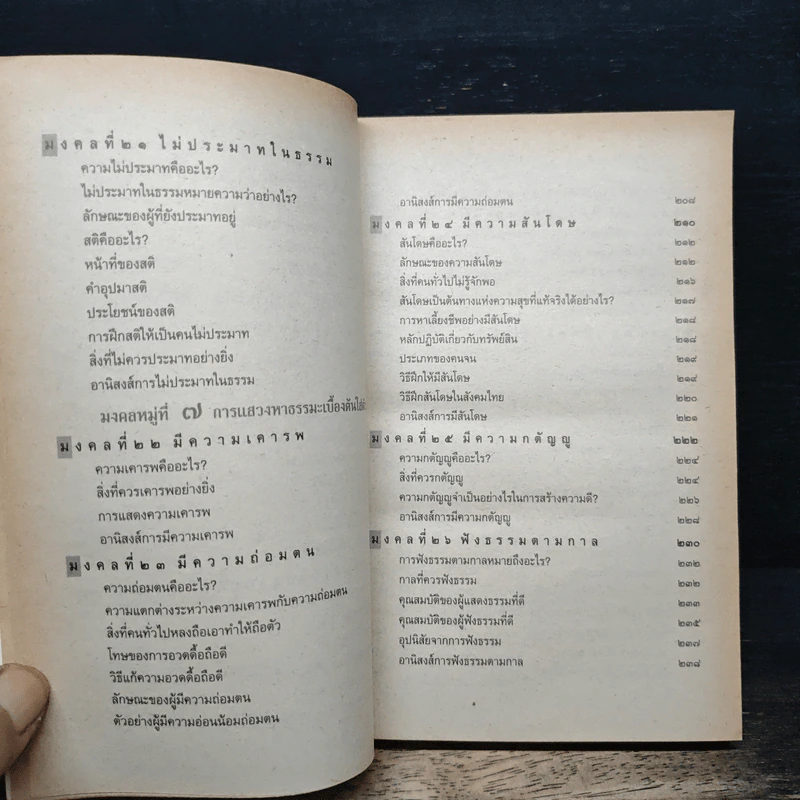 มงคลที่ ๒๑ ไม่ประมาทในธรรม
ความไม่ประมาทคืออะไร?
ไม่ประมาทในธรรมหมายความว่าอย่างไร?
ลักษณะของผู้ที่ยังประมาทอยู่
สติคืออะไร?
หน้าที่ของสติ
คำอุปมาสติ
ประโยชน์ของสติ
การฝึกสติให้เป็นคนไม่ประมาท
สิ่งที่ไม่ควรประมาทอย่างยิ่ง
อานิสงส์การไม่ประมาทในธรรม
มงคลหมู่ที่ ๗ การแสวงหาธรรมะเบื้องต้นใส่ตัว
มงคลที่ ๒๒ มีความเคารพ
ความเคารพคืออะไร?
สิ่งที่ควรเคารพอย่างยิ่ง
การแสดงความเคารพ
อานิสงส์การมีความเคารพ
มงคลที่ ๒๓ มีความถ่อมตน
ความถ่อมตนคืออะไร?
ความแตกต่างระหว่างความเคารพกับความถ่อมตน
สิ่งที่คนทั่วไปหลงถือเอาทำให้ถือตัว
โทษของการอวดดื้อถือดี
วิธีแก้ความอวดดื้อถือดี
ลักษณะของผู้มีความถ่อมตน
ตัวอย่างผู้มีความอ่อนน้อมถ่อมตน
อานิสงส์การมีความถ่อมตน ๒๐๘
มงคลที่ ๒๔ มีความสันโดษ ๒๑๐
สันโดษคืออะไร? ๒๑๒
ลักษณะของความสันโดษ ๒๑๒
สิ่งที่คนทั่วไปไม่รู้จักพอ ๒๑๖
สันโดษเป็นต้นทางแห่งความสุขที่แท้จริงได้อย่างไร? ๒๑๗
การหาเลี้ยงชีพอย่างมีสันโดษ ๒๑๘
หลักปฏิบัติเกี่ยวกับทรัพย์สิน ๒๑๘
ประเภทของคนจน ๒๑๙
วิธีฝึกให้มีสันโดษ ๒๑๙
วิธีฝึกสันโดษในสังคมไทย ๒๒๐
อานิสงส์การมีสันโดษ ๒๒๑
มงคลที่ ๒๕ มีความกตัญญู ๒๒๒
ความกตัญญูคืออะไร? ๒๒๔
สิ่งที่ควรกตัญญู ๒๒๔
ความกตัญญูจำเป็นอย่างไรในการสร้างความดี? ๒๒๖
อานิสงส์การมีความกตัญญู ๒๒๘
มงคลที่ ๒๖ ฟังธรรมตามกาล ๒๓๐
การฟังธรรมตามกาลหมายถึงอะไร? ๒๓๒
กาลที่ควรฟังธรรม ๒๓๒
คุณสมบัติของผู้แสดงธรรมที่ดี ๒๓๓
คุณสมบัติของผู้ฟังธรรมที่ดี ๒๓๕
อุปนิสัยจากการฟังธรรม ๒๓๗
อานิสงส์การฟังธรรมตามกาล ๒๓๘